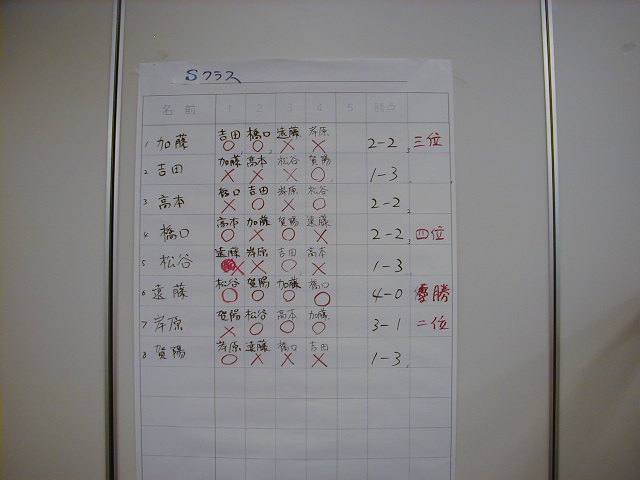 Sクラス
名前 1 2 3 4 5 勝点
1 加藤 吉田 橋口 遠藤 岸原 2-2 三位
○ ○ × ×
2 吉田 加藤 高本 松谷 賀陽 1-3
× × × ○
3 高本 橋口 吉田 岸原 松谷 2-2
× ○ × ○
4 橋口 高本 加藤 賀陽 遠藤 2-2 四位
○ × ○ ×
5 松谷 遠藤 岸原 吉田 高本 1-3
× × ○ ×
6 遠藤 松谷 賀陽 加藤 橋口 4-0 優勝
○ ○ ○ ○
7 岸原 賀陽 松谷 高本 加藤 3-1 二位
× ○ ○ ○
8 賀陽 岸原 遠藤 橋口 吉田 1-3
○ × × ×